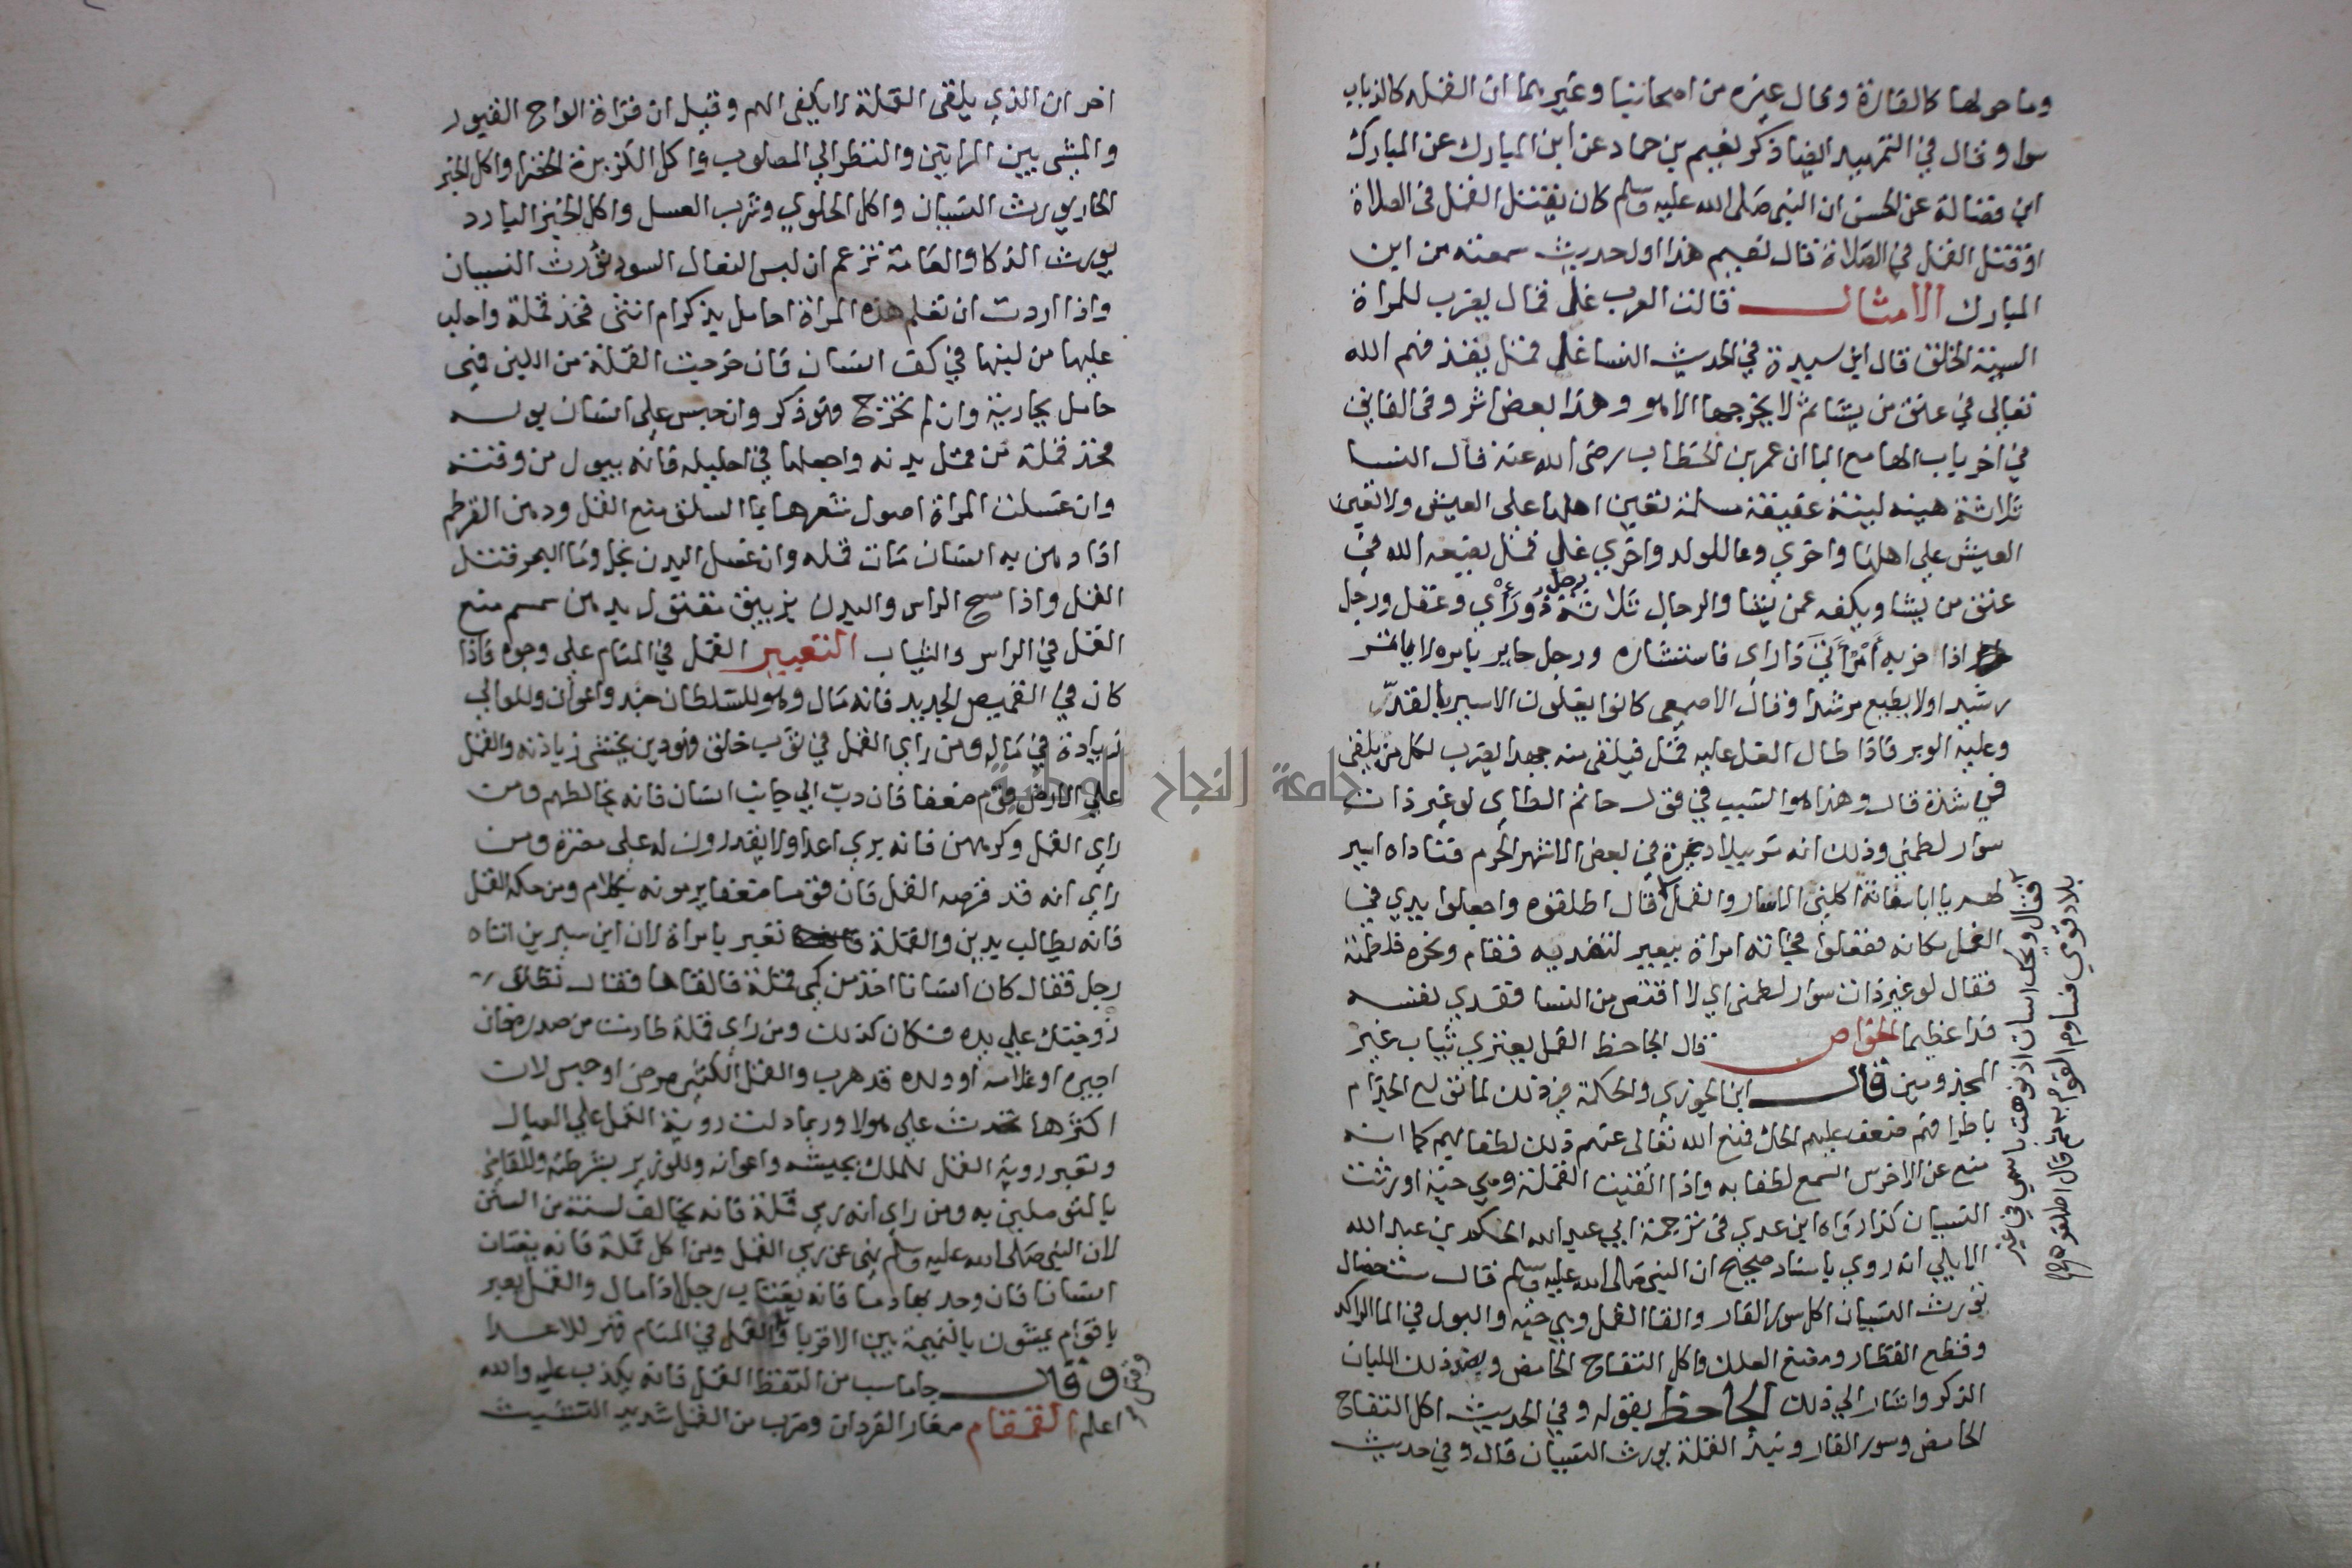 وما حولها كالفارة وقال غيره من اصحابنا وغيرهما ان القمله كالذباب
سوا وقال في التمهيد ايضا ذكر نعيم بن حماد عن ابن المبارك عن المبارك
ابن فضالة عن الحسن ان النبي صلى الله عليه وسلم كان يقتل القمل في الصلاة
او قتل القمل في الصلاة قال نعيم هذا اول حديث سمعته من ابن
المبارك الامثال قالت العرب غل قمل يضرب للمراة
السيئة الخلق قال ابن سيدة في الحديث النسا غل قمل يقذفهم الله
تعالى في عنق من يشا ثم لا يخرجها الا هو وهذا بعض اثر وفي الفايق
في اخر باب الها مع اليا ان عمر بن الخطاب رضي الله عنه قال النسا
ثلاثة هينه لينة عفيفة مسلمة تعين اهلها على العيش ولا تعين
العيش على اهلها واخرى وعا للولد واخرى غل قمل يضعه الله في
عنق من يشا ويكفه عمن يشا والرجال ثلاثة رجل ذو رأي وعقل ورجل
اذا حزبه أمر أتى ذا راى فاستشاره ورجل حاير باير لا ياتمر
رشدا ولا يطيع مرشدا وقال الاصمعي كانوا يغلون الاسير بالقد
وعليه الوبر فاذا طال الغل عليه قمل فيلقى منه جهدا يضرب لكل من يلقى
في شدة قال وهذا هو السبب في قول حاتم الطاي لو غير ذات
سوار لطمني وذلك انه مر ببلاد عنزة في بعض الاشهر الحرم فناداه اسير
لهم يا ابا سفانة اكلني الاسار والقمل قال اطلقوه واجعلوا يدي في
الغل مكانه ففعلوا فجاته امراة ببعير لتفصده فقام ونحره فلطمته
فقال لو غير ذات سوار لطمني اي لا اقتص من النسا ففدى نفسه
فدا عظيما الخواص قال الجاحظ القمل يعتري ثياب غير
المجذومين قال ابن الجوزي والحكمة في ذلك لما تولع الجذام
باطرافهم ضعف عليهم الحك فمنع الله تعالى عنهم ذلك لطفا بهم كما انه
منع عن الاخرس السمع لطفا به واذا القيت القملة وهي حية اورثت
النسيان كذا رواه ابن عدي في ترجمة ابي عبد الله الحكم بن عبد الله
الايلي انه روي باسناد صحيح ان النبي صلى الله عليه وسلم قال ست خصال
تورث النسيان اكل سور الفار والقا القمل وهي حيه والبول في الما الراكد
وقطع القطار ومضغ العلك واكل التفاح الحامض ويضد ذلك اللبان
الذكر واشار الى ذلك الجاحظ بقوله وفي الحديث اكل التفاح
الحامض وسور الفار ونبذ القملة يورث النسيان قال وفي حديث
فقال ويحك اسات اذ نوهت باسمي في غير
بلاد قومي فساوم القوم به ثم قال اطلقوه
اخر ان الذي يلقى القملة لا يكفى الهم وقيل ان قراة الواح القبور
والمشى بين المراتين والنظر الى المصلوب واكل الكزبرة الخضرا واكل الخبز
الحار يورث النسيان واكل الحلوى وشرب العسل واكل الخبز البارد
يورث الذكا والعامة تزعم ان لبس النعال السود تورث النسيان
واذا اردت ان تعلم هذه المراة احامل بذكر ام انثى فخذ قملة واحلب
عليها من لبنها في كف انسان فان خرجت القملة من اللبن فهى
حامل بجارية وان لم تخرج فهو ذكر وان حبس على انسان بوله
فخذ قملة من قمل بدنه واجعلها في احليله فانه يبول من وقته
وان غسلت المراة اصول شعرها بما السلق منع القمل ودهن القرطم
اذا دهن به انسان مات قمله وان غسل البدن بخل وما البحر قتل
القمل واذا مسح الراس والبدن بزيبق مقتول بدهن سمسم منع
القمل في الراس والثياب التعبير القمل في المنام على وجوه فاذا
كان في القميص الجديد فانه مال وهو للسلطان جند واعوان وللوالي
زيادة في ماله ومن راى القمل في ثوب خلق فهو دين يخشى زيادته والقمل
على الارض قوم ضعفا فان دب الى جانب انسان فانه يخالطهم ومن
راى القمل وكرههن فانه يرى اعدا ولا يقدرون له على مضرة ومن
راى انه قد قرصه القمل فان قوما ضعفا يرمونه بكلام ومن حكه القمل
فانه يطالب بدين والقملة تعبر بامراة لان ابن سيرين اتاه
رجل فقال كان انسانا اخذ من كمي قملة فالقاها فقال تطلق
زوجتك على يده فكان كذلك ومن راى قملة طارت من صدره فان
اجيره او غلامه او ولده قد هرب والقمل الكثير مرض او حبس لان
اكثرها تحدث على هولا وربما دلت روية القمل على العيال
وتعبر روية القمل للملك بجيشه واعوانه وللوزير بشرطه وللقاضي
بالمتوصلين به ومن راى انه رمى قملة فانه يخالف لسنة من السنن
لان النبي صلى الله عليه وسلم نهى عن رمي القمل ومن اكل قملة فانه يغتاب
انسانا فان وجد بها دما فانه يغتاب رجلا ذا مال والقمل يعبر
باقوام يمشون بالنميمة بين الاقربا والقمل في المنام قهر للاعدا
وقال جاماسب من التقط القمل فانه يكذب عليه والله
اعلم القمقام صغار القردان وضرب من القمل شديد التشبث
جامعة النجاح الوطنية